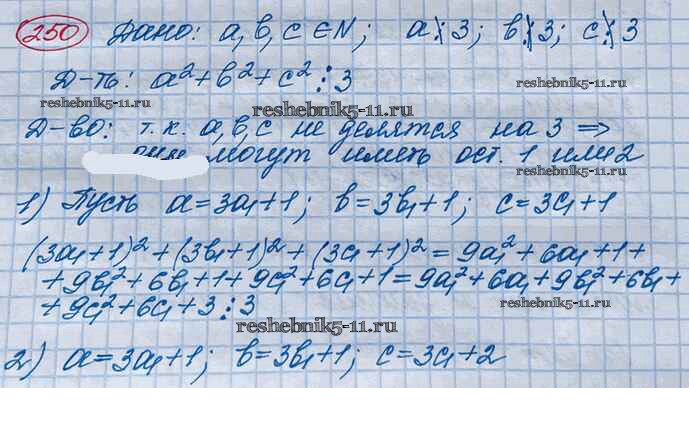 250 Дано: a, b, c ∈ N; a ⋮̸ 3; b ⋮̸ 3; c ⋮̸ 3
Д-ть: a² + b² + c² ⋮ 3
reshebnik5-11.ru
reshebnik5-11.ru
reshebnik5-11.ru
Д-во: т.к. a, b, c не делятся на 3 =>
могут иметь ост. 1 или 2
reshebnik5-11.ru
1) Пусть a = 3a₁ + 1; b = 3b₁ + 1; c = 3c₁ + 1
(3a₁ + 1)² + (3b₁ + 1)² + (3c₁ + 1)² = 9a₁² + 6a₁ + 1 +
+ 9b₁² + 6b₁ + 1 + 9c₁² + 6c₁ + 1 = 9a₁² + 6a₁ + 9b₁² + 6b₁ +
+ 9c₁² + 6c₁ + 3 ⋮ 3
reshebnik5-11.ru
reshebnik5-11.ru
2) a = 3a₁ + 1; b = 3b₁ + 1; c = 3c₁ + 2
reshebnik5-11.ru